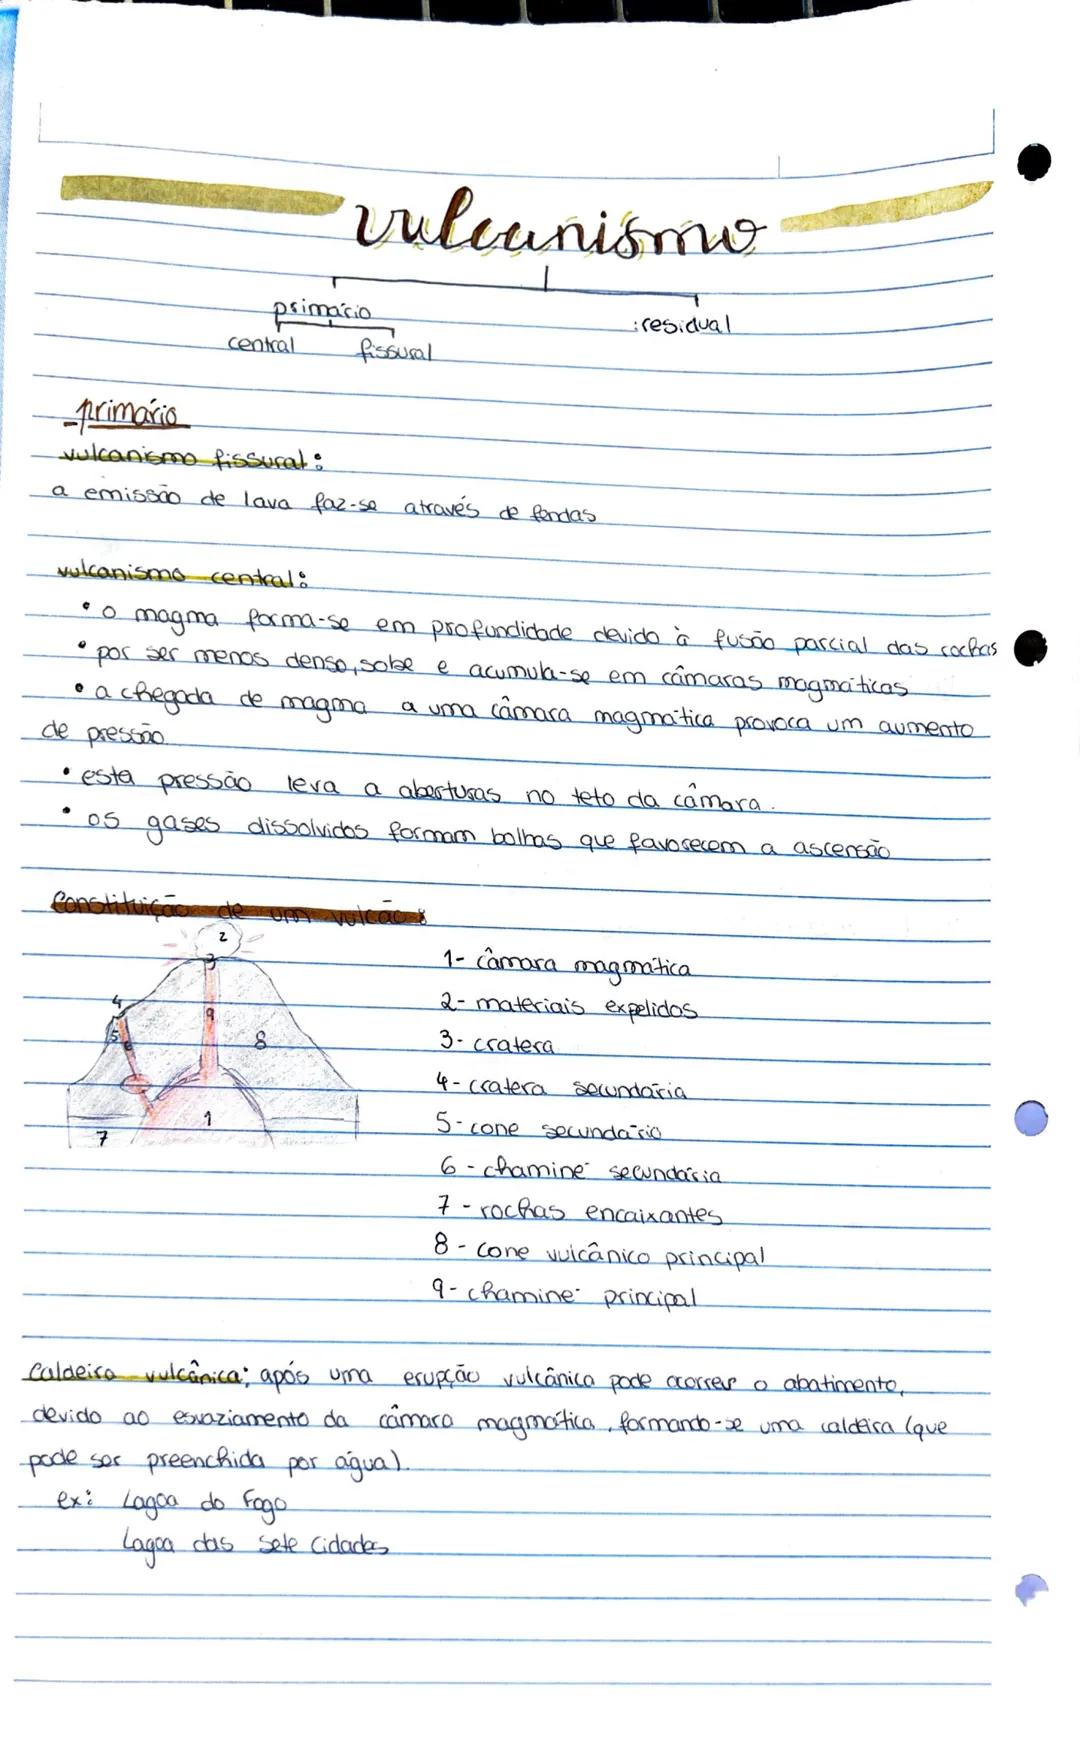 vulcanismo
primário
:residual
central fissural
primário
vulcanismo fissural:
a emissão de lava faz-se através de fendas
vulcanismo central:
• o magma forma-se em profundidade devido à fusão parcial das rochas
• por ser menos denso, sobe e acumula-se em câmaras magmáticas
• a chegada de magma a uma câmara magmática provoca um aumento
de pressão
• esta pressão leva a aberturas no teto da câmara.
• os gases dissolvidos formam bolhas que favorecem a ascensão
Constituição de um vulcão:
2
3
4
9
5
6
8
1
7
1- câmara magmática
2- materiais expelidos
3- cratera
4- cratera secundária
5- cone secundário
6 - chaminé secundária
7 - rochas encaixantes
8 - cone vulcânico principal
9- chaminé principal
Caldeira vulcânica: após uma erupção vulcânica pode ocorrer o abatimento,
devido ao esvaziamento da câmara magmática, formando-se uma caldeira (que
pode ser preenchida por água).
ex: Lagoa do Fogo
Lagoa das Sete Cidades